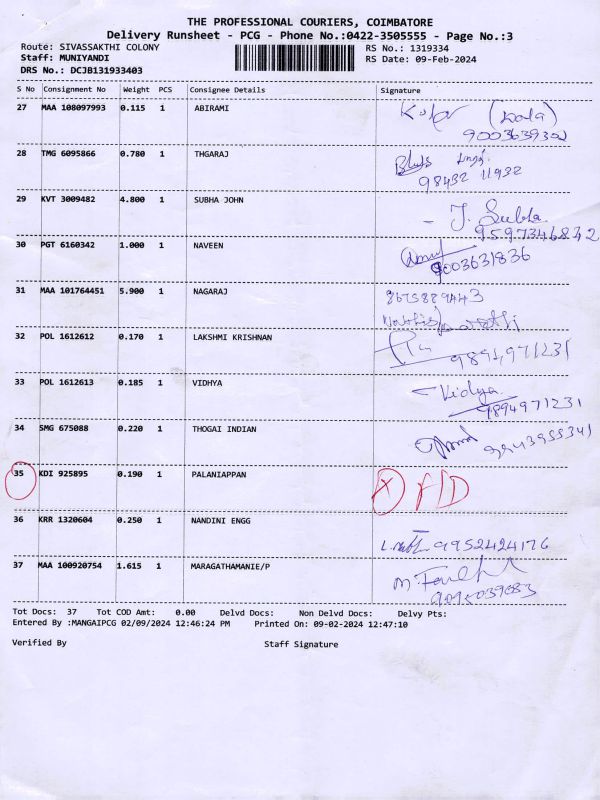 THE PROFESSIONAL COURIERS, COIMBATORE
Delivery Runsheet - PCG - Phone No.:0422-3505555 - Page No.:3
Route: SIVASSAKTHI COLONY RS No.: 1319334
Staff: MUNIYANDI RS Date: 09-Feb-2024
DRS No.: DCJB131933403
S No Consignment No Weight PCS Consignee Details Signature
27 MAA 108097993 0.115 1 ABIRAMI
9003639302
28 TMG 6095866 0.780 1 THGARAJ
98432 11932
29 KVT 3009482 4.800 1 SUBHA JOHN - J. Subha.
9597346842
30 PGT 6160342 1.000 1 NAVEEN
9003631836
31 MAA 101764451 5.900 1 NAGARAJ 8675889443
32 POL 1612612 0.170 1 LAKSHMI KRISHNAN
9894971231
33 POL 1612613 0.185 1 VIDHYA Vidya
9894971231
34 SMG 675088 0.220 1 THOGAI INDIAN
9943955341
35 KDI 925895 0.190 1 PALANIAPPAN
36 KRR 1320604 0.250 1 NANDINI ENGG
9952424176
37 MAA 100920754 1.615 1 MARAGATHAMANIE/P
9095039683
Tot Docs: 37 Tot COD Amt: 0.00 Delvd Docs: Non Delvd Docs: Delvy Pts:
Entered By :MANGAIPCG 02/09/2024 12:46:24 PM Printed On: 09-02-2024 12:47:10
Verified By Staff Signature